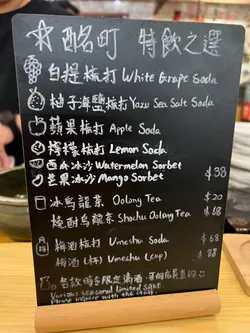 酩町 特飲之選
白提梳打 White Grape Soda
柚子海鹽梳打 Yuzu Sea Salt Soda
蘋果梳打 Apple Soda
檸檬梳打 Lemon Soda
西瓜冰沙 Watermelon Sorbet
芒果冰沙 Mango Sorbet $38
冰烏龍茶 Oolong Tea $20
燒酎烏龍茶 Shochu Oolong Tea $68
梅酒梳打 Umeshu Soda $68
梅酒 (杯) Umeshu (cup)
各款時令限定清酒,可向店員查詢
Various seasonal limited SAKE.
Please inquire with the staff.